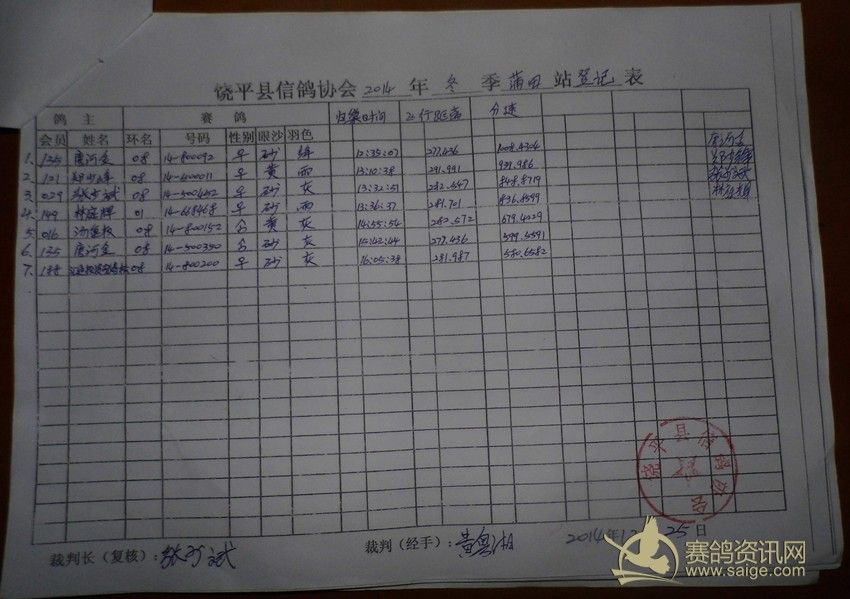 饶平县信鸽协会 2014 年 冬 季 莆田 站 登记 表
鸽 主 赛 鸽 归巢时间 飞行距离 分速
会员 姓名 环名 号码 性别 眼沙 羽色
1. 135 唐河金 08 14-800092 早 砂 绛 12:35:07 277.436 1008.4304
2. 121 08 14-400011 早 黄 雨 13:10:38 291.991 939.986
3. 029 张少斌 08 14-500452 早 砂 灰 13:32:51 282.647 848.8719
4. 149 林庭辉 01 14-668468 早 砂 雨 13:36:37 281.701 836.8599
5. 016 08 14-800152 黄 灰 14:55:54 282.572 679.4029
6. 135 唐河金 08 14-500390 砂 灰 277.436
7. 188 08 14-800200 早 砂 灰 16:05:38 281.987 580.6582
唐河金
张少斌
饶平县信鸽协会
裁判长（复核）：张少斌
裁判（经手）：
2014年12 25日
赛鸽资讯网
www.saige.com